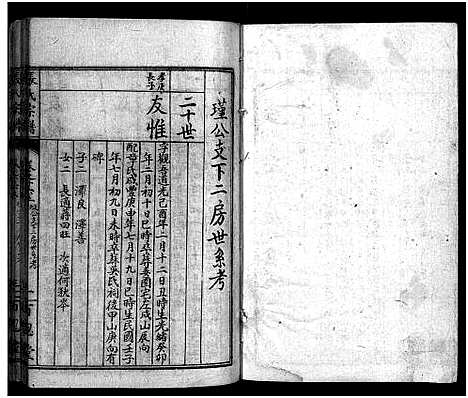 瑾公支下二房世系考
二十世
孝良長子
友惟
字觀吾道光己酉年二月十二日丑時生光緒癸卯
年二月初十日巳時卒葬姜園宅左戌山辰向
配章氏咸豐庚申年七月十九日巳時生民國壬子
年七月初九日未時卒葬吳氏祠後甲山庚向有
碑
子二 澤良 澤善
女二 長適蔣四旺 次適何狄峯
氏宗譜